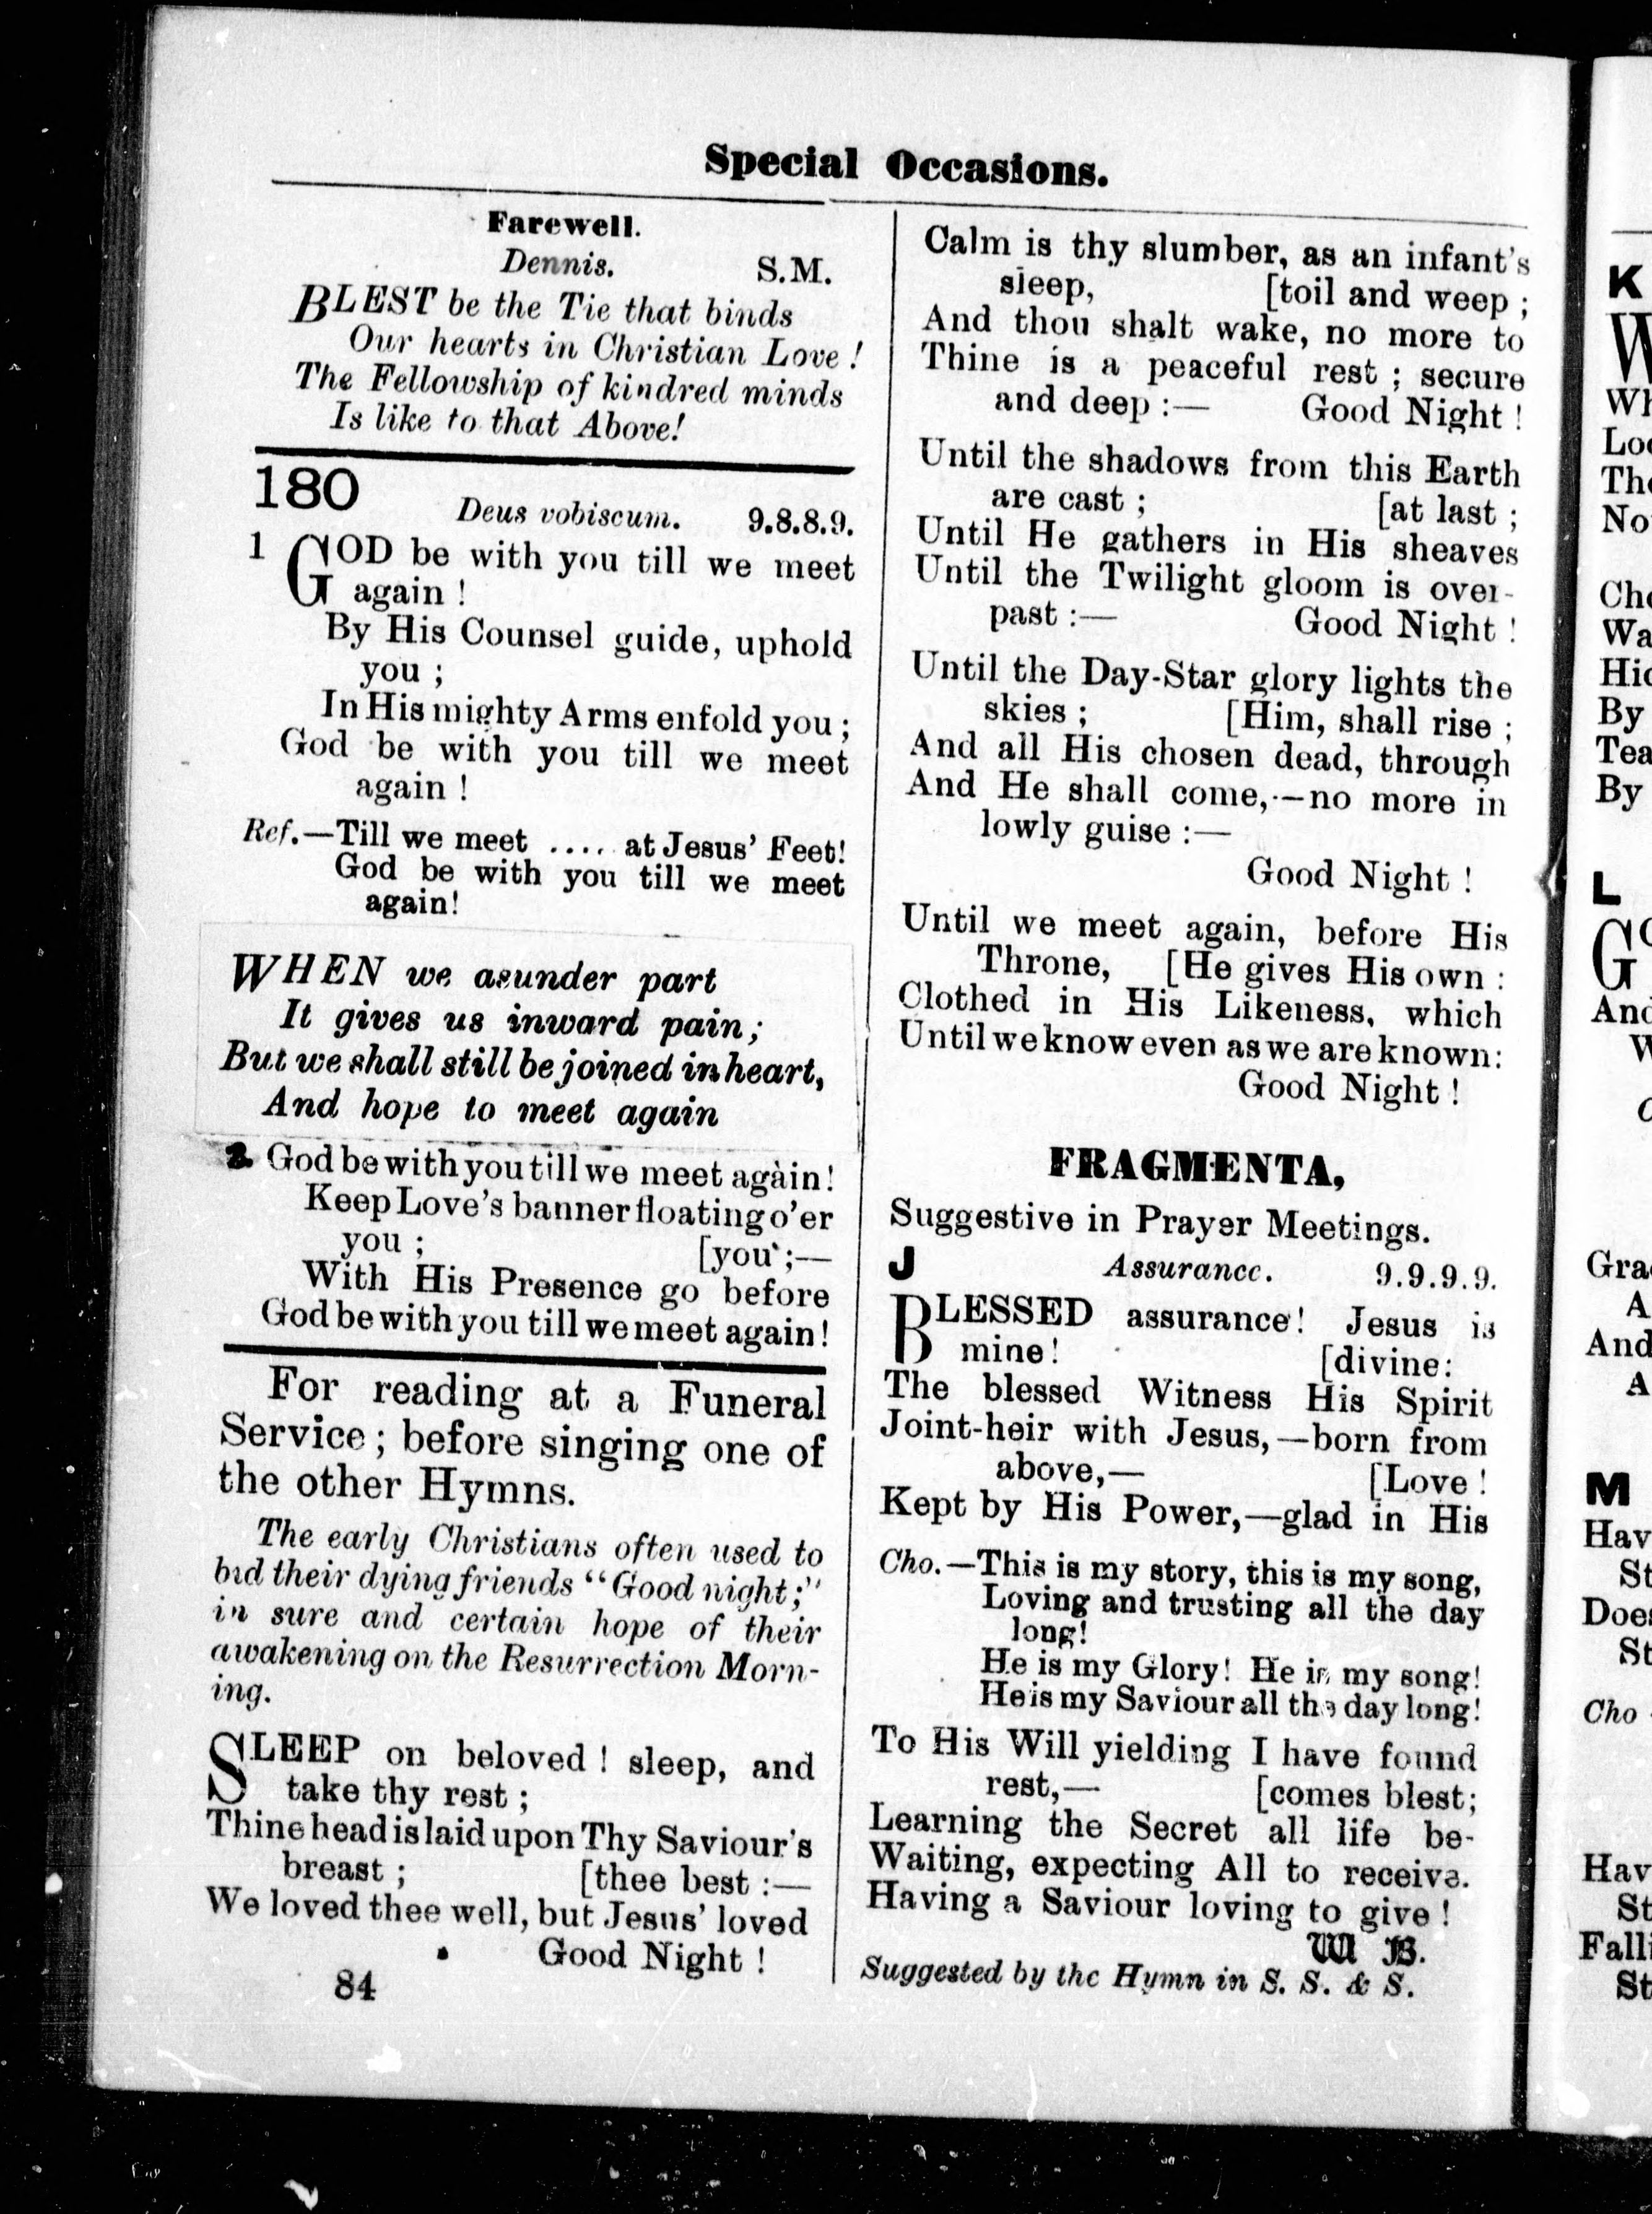 Special Occasions.
Farewell.
Dennis. S.M.
BLEST be the Tie that binds
Our hearts in Christian Love !
The Fellowship of kindred minds
Is like to that Above!
180
Deus vobiscum. 9.8.8.9.
1 GOD be with you till we meet
again !
By His Counsel guide, uphold
you ;
In His mighty Arms enfold you ;
God be with you till we meet
again !
Ref.—Till we meet .... at Jesus' Feet!
God be with you till we meet
again!
WHEN we asunder part
It gives us inward pain;
But we shall still be joined in heart,
And hope to meet again
2 God be with you till we meet again!
Keep Love's banner floating o'er
you ; [you ;—
With His Presence go before
God be with you till we meet again!
For reading at a Funeral
Service ; before singing one of
the other Hymns.
The early Christians often used to
bid their dying friends "Good night;"
in sure and certain hope of their
awakening on the Resurrection Morn-
ing.
SLEEP on beloved ! sleep, and
take thy rest ;
Thine head is laid upon Thy Saviour's
breast ; [thee best :—
We loved thee well, but Jesus' loved
Good Night !
84
Calm is thy slumber, as an infant's
sleep, [toil and weep ;
And thou shalt wake, no more to
Thine is a peaceful rest ; secure
and deep :— Good Night !
Until the shadows from this Earth
are cast ; [at last ;
Until He gathers in His sheaves
Until the Twilight gloom is over-
past :— Good Night !
Until the Day-Star glory lights the
skies ; [Him, shall rise ;
And all His chosen dead, through
And He shall come,—no more in
lowly guise :—
Good Night !
Until we meet again, before His
Throne, [He gives His own :
Clothed in His Likeness, which
Until we know even as we are known:
Good Night !
FRAGMENTA,
Suggestive in Prayer Meetings.
J Assurance. 9.9.9.9.
BLESSED assurance! Jesus is
mine! [divine:
The blessed Witness His Spirit
Joint-heir with Jesus,—born from
above,— [Love !
Kept by His Power,—glad in His
Cho.—This is my story, this is my song,
Loving and trusting all the day
long!
He is my Glory! He is my song!
He is my Saviour all the day long!
To His Will yielding I have found
rest,— [comes blest;
Learning the Secret all life be-
Waiting, expecting All to receive.
Having a Saviour loving to give !
W B.
Suggested by the Hymn in S. S. & S.
K
W
Wh
Loo
The
No
Cho
Wa
Hid
By
Tea
By
L
GO
And
W
C
Gra
A
And
A
M
Hav
St
Does
St
Cho
Hav
St
Falli
St